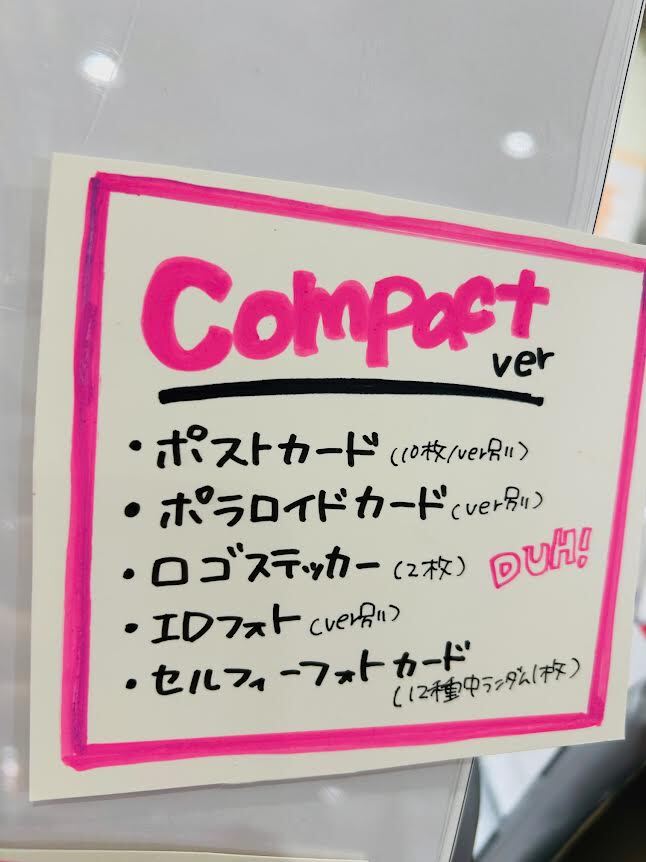 Compact
ver
・ポストカード(10枚/ver別)
・ポラロイドカード(ver別)
・ロゴステッカー(2枚)
DUH!
・IDフォト(ver別)
・セルフィーフォトカード
(12種中ランダム1枚)